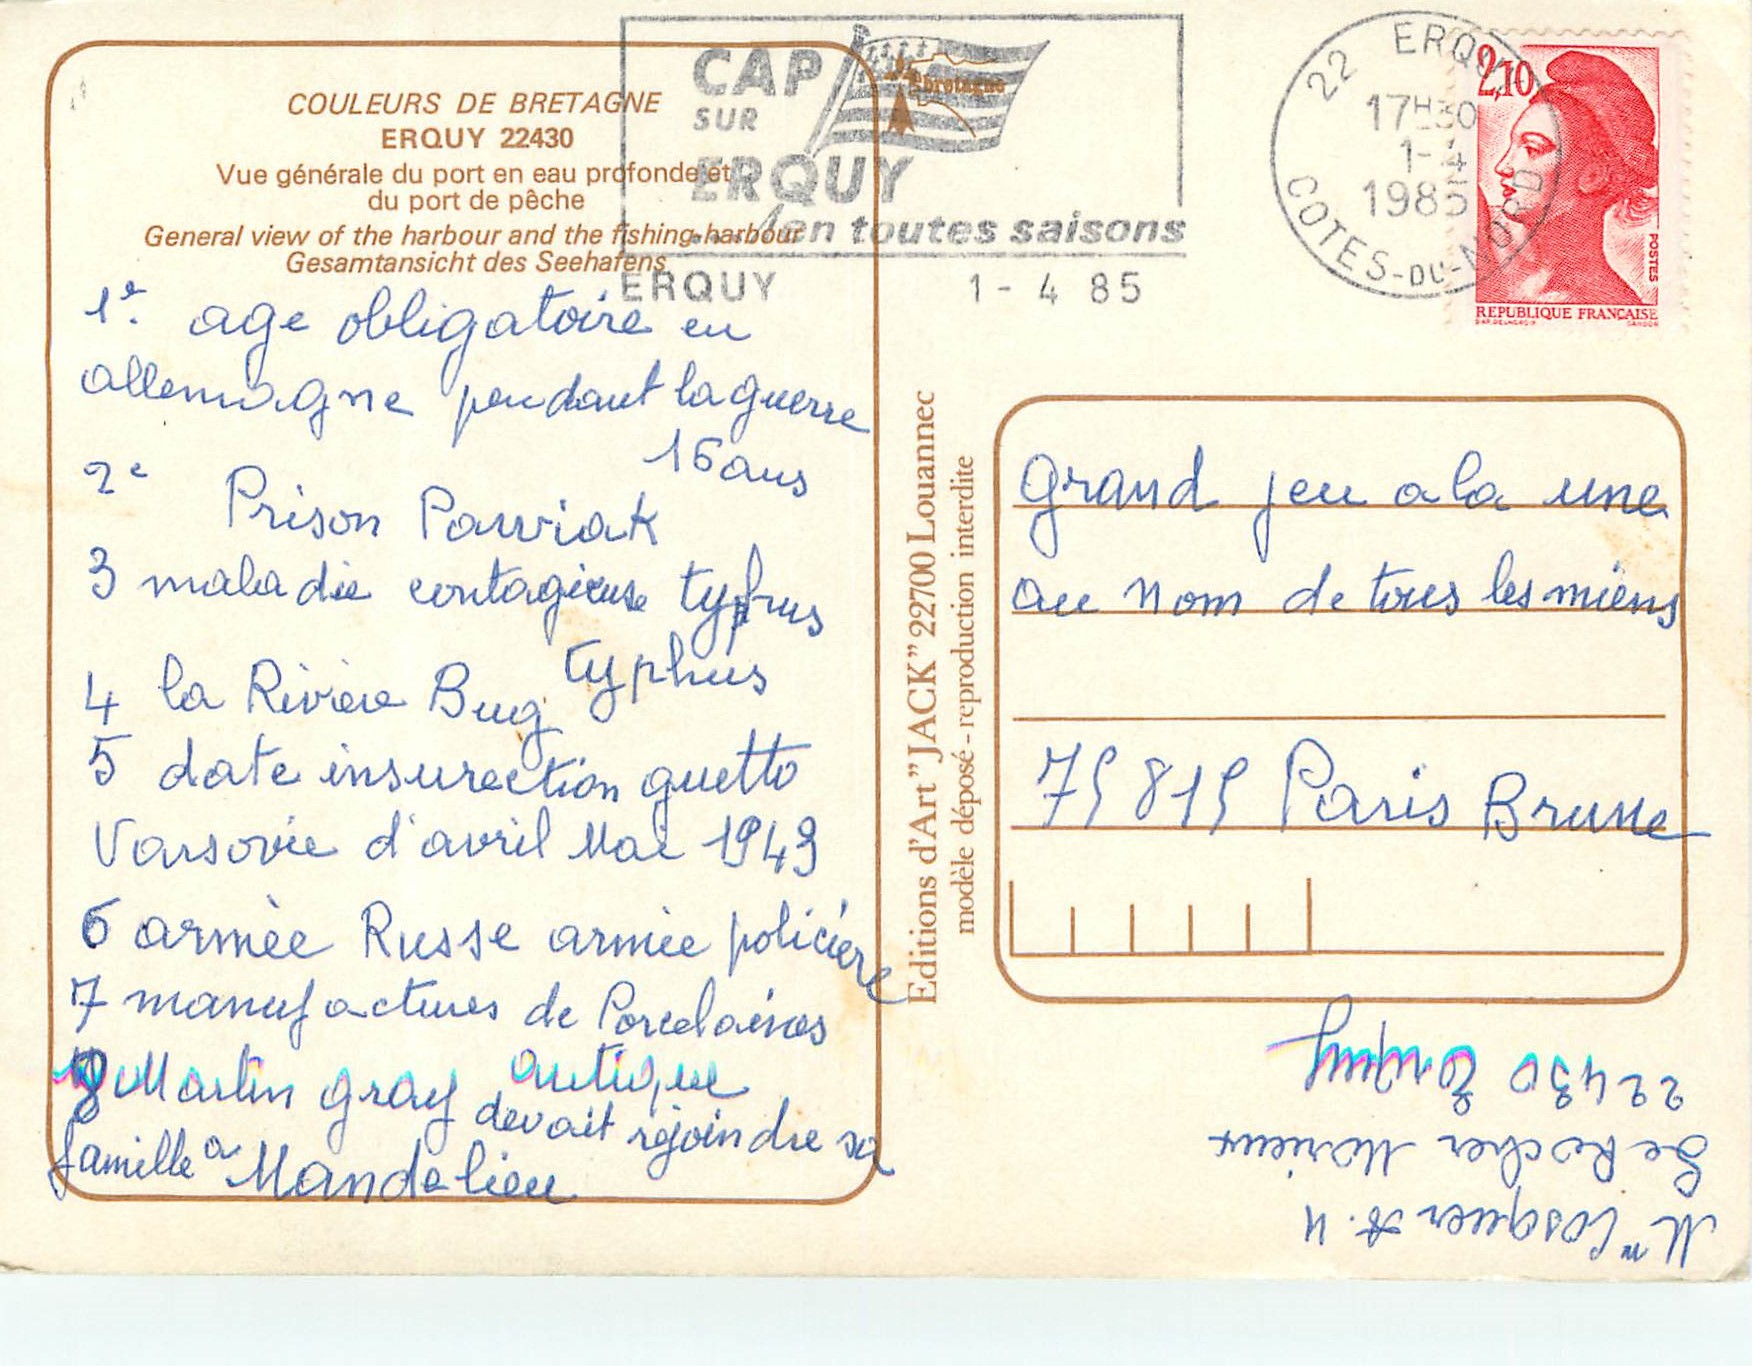 COULEURS DE BRETAGNE
ERQUY 22430
Vue générale du port en eau profonde et
du port de pêche
General view of the harbour and the fishing-harbour
Gesamtansicht des Seehafens
1e. age obligatoire en
allemagne pendant la guerre
16 ans
2e Prison Pawiak
3 maladie contagieuse typhus
typhus
4 la Rivière Bug
5 date insurection guetto
Varsovie d'avril Mai 1943
6 armèe Russe armèe policière
7 manufactures de Porcelaines
antique
8 Martin gray devait rejoindre sa
famille a Mandelieu
CAP
SUR
ERQUY
bretagne
...en toutes saisons
ERQUY 1-4 85
22 ERQUY
17H30
1-4
1985
COTES-DU-NORD
2,10
POSTES
REPUBLIQUE FRANÇAISE
Editions d'Art "JACK" 22700 Louannec
modèle déposé - reproduction interdite
grand jeu a la une
au nom de tous les miens
75815 Paris Brune
Mme Cosquer A. M
Le Rocher Morieux
22430 Erquy